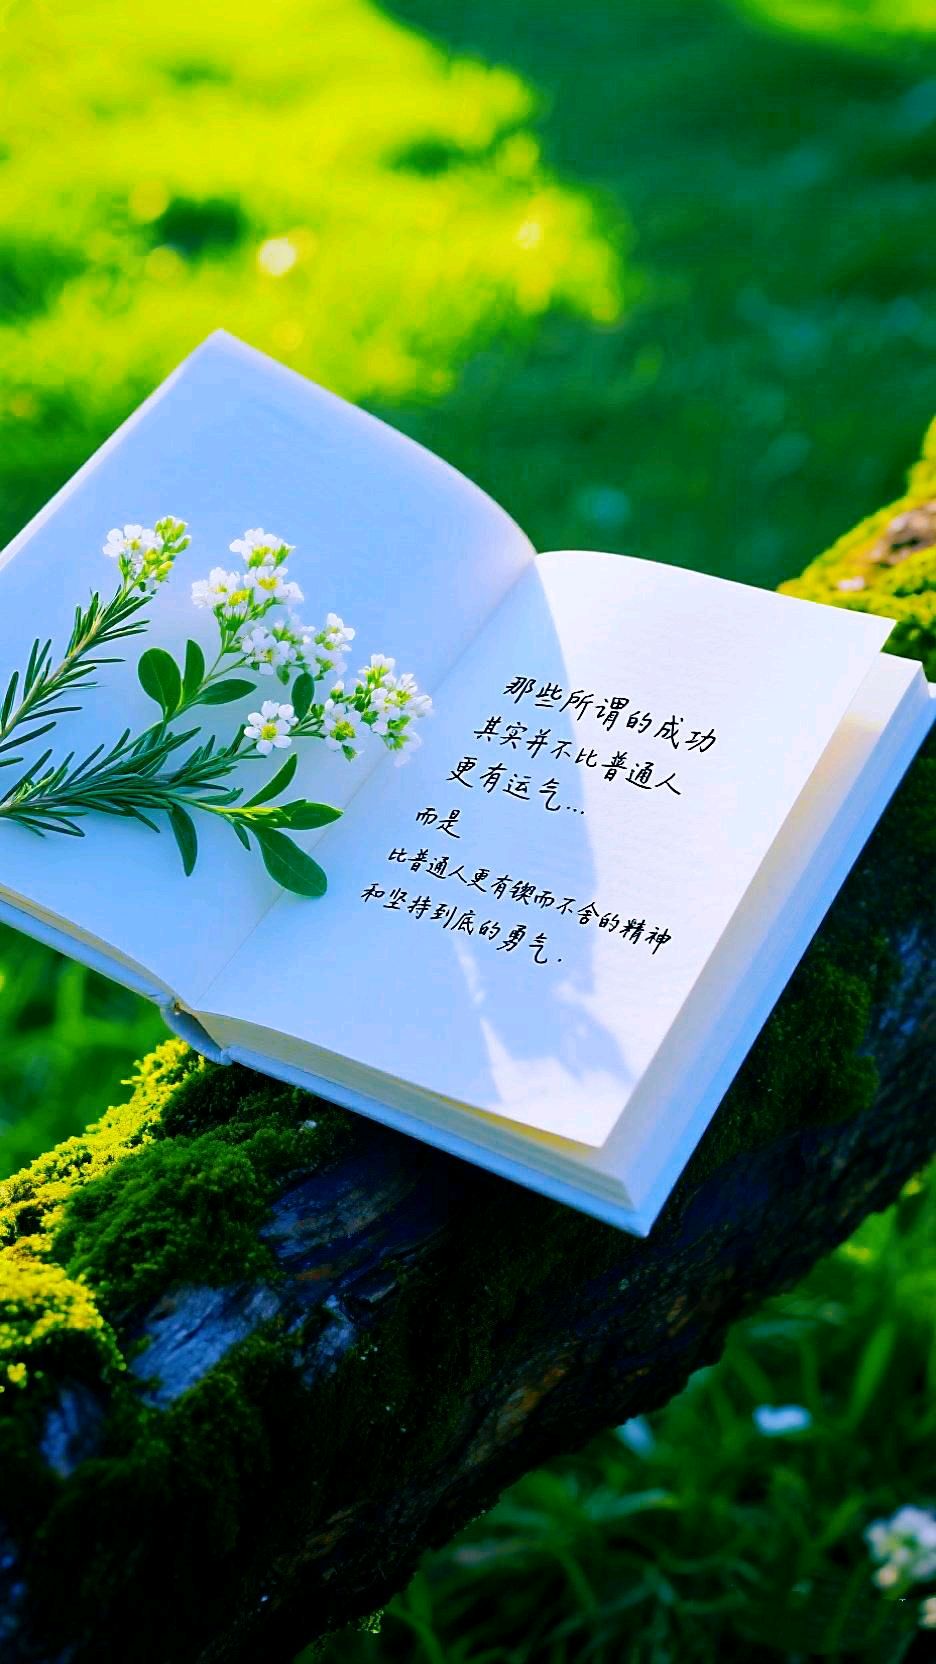 那些所谓的成功
其实并不比普通人
更有运气...
而是
比普通人更有锲而不舍的精神
和坚持到底的勇气.